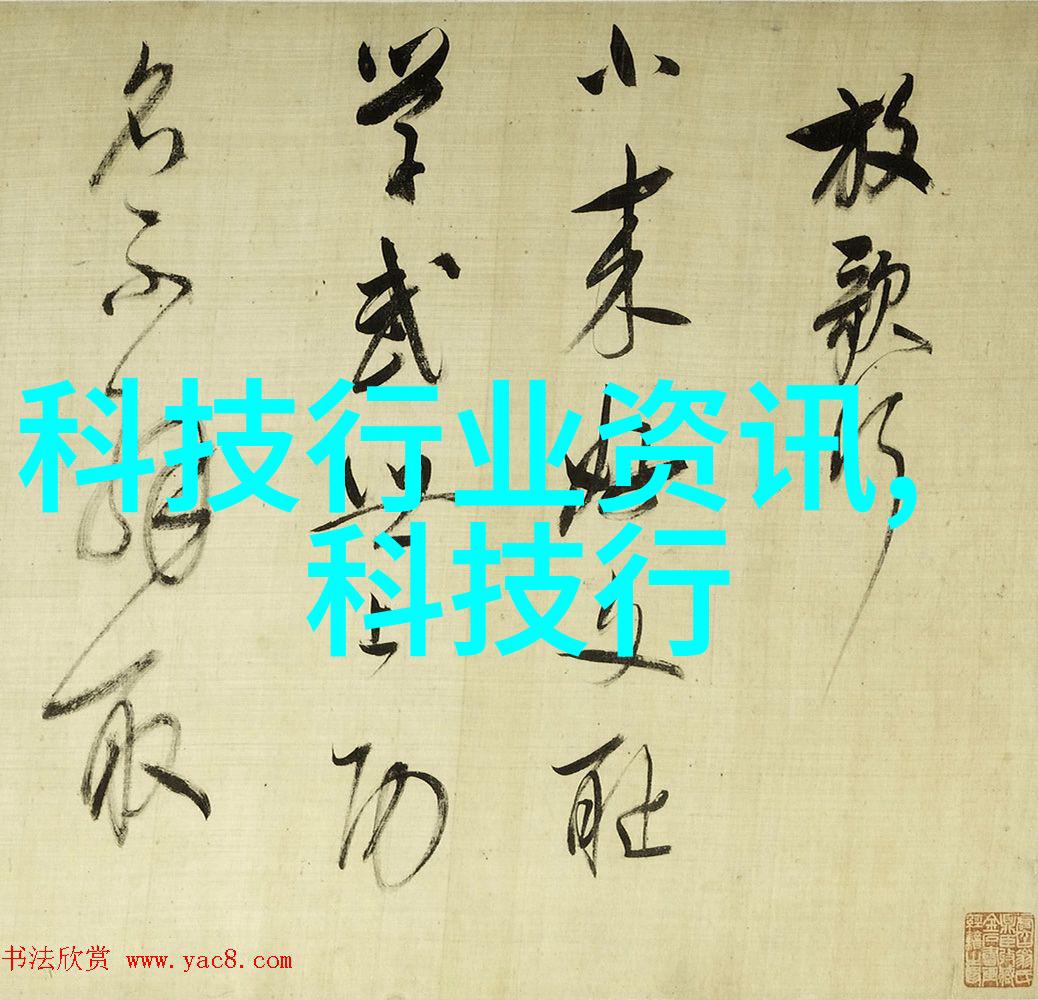 放歌行
小来耻
学武功
名不解取
科技行业资讯,
科技行
书法欣赏 www.yac8.com